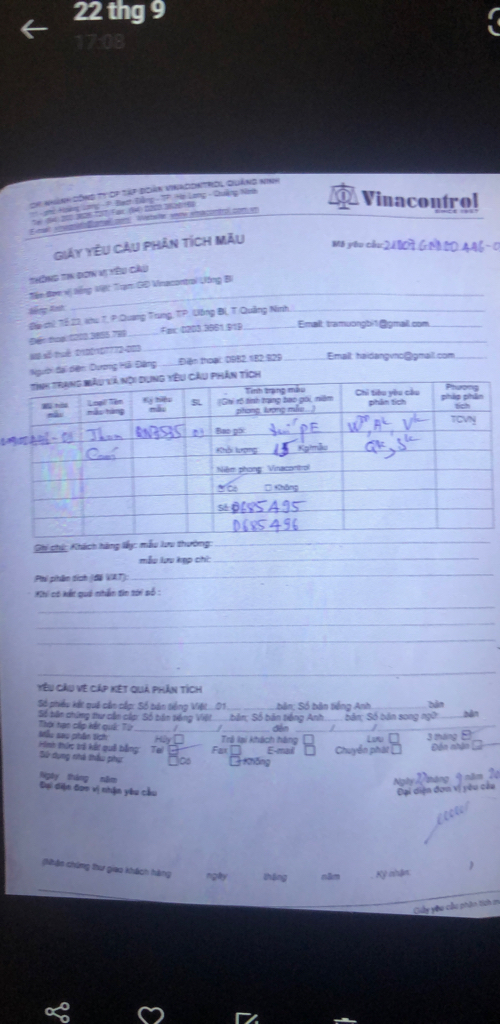 22 thg 9
17:08
CHI NHÁNH CÔNG TY CP TẬP ĐOÀN VINACONTROL QUẢNG NINH
Vinacontrol
SINCE 1957
GIẤY YÊU CẦU PHÂN TÍCH MẪU
Mã yêu cầu:
THÔNG TIN ĐƠN VỊ YÊU CẦU
Tên đơn vị tiếng Việt: Trạm GĐ Vinacontrol Uông Bí
tiếng Anh:
Địa chỉ: Tổ 23, khu 7, P.Quang Trung, TP. Uông Bí, T.Quảng Ninh
Điện thoại: 0203.3855.799 Fax: 0203.3661.919 Email: tramuongbi1@gmail.com
Mã số thuế:
Người đại diện: Dương Hải Đăng Điện thoại: 0982.182.929 Email: haidangvnc@gmail.com
TÌNH TRẠNG MẪU VÀ NỘI DUNG YÊU CẦU PHÂN TÍCH
Mã hóa mẫu
Loại/ Tên mẫu hàng
Ký hiệu mẫu
SL
Tình trạng mẫu
(Ghi rõ tình trạng bao gói, niêm phong, lượng mẫu...)
Chỉ tiêu yêu cầu phân tích
Phương pháp phân tích
Than
QN3535
01
Bao gói: túi PE
TCVN
Khối lượng: 1,5 Kg/mẫu
Niêm phong: Vinacontrol
Có Không
Số: 0685495
0685496
Ghi chú: Khách hàng lấy: mẫu lưu thường:
mẫu lưu kẹp chì:
Phí phân tích (đã VAT):
Khi có kết quả nhắn tin tới số :
YÊU CẦU VỀ CẤP KẾT QUẢ PHÂN TÍCH
Số phiếu kết quả cần cấp: Số bản tiếng Việt 01 bản; Số bản tiếng Anh bản
Số bản chứng thư cần cấp: Số bản tiếng Việt bản; Số bản tiếng Anh bản; Số bản song ngữ bản
Thời hạn cấp kết quả: Từ / / đến / /
Mẫu sau phân tích: Hủy Trả lại khách hàng Lưu 3 tháng
Hình thức trả kết quả bằng: Tại Fax E-mail Chuyển phát Đến nhận
Sử dụng nhà thầu phụ: Có Không
Ngày tháng năm
Đại diện đơn vị nhận yêu cầu
Ngày 22 tháng 9 năm 20
Đại diện đơn vị yêu cầu
(Nhận chứng thư giao khách hàng ngày tháng năm . Ký nhận: )
Giấy yêu cầu phân tích